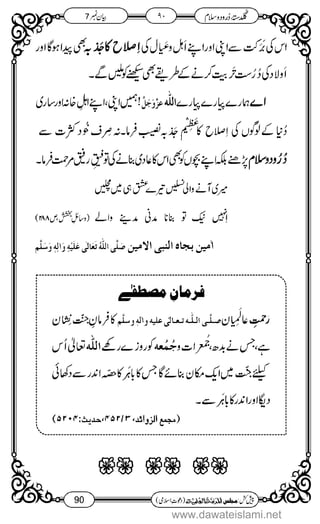 گلدستۂ درود و سلام ۹۰ بیان نمبر 7
اس کی بَرَکت سے اپنی اور اپنے اہل و عیال کی اِصلاح کا جذبہ بھی پیدا ہوگا اور
اولاد کی دُرُست تربیت کرنے کے طریقے بھی سیکھنے کو ملیں گے۔
اے ہمارے پیارے پیارے اللہ عَزَّوَجَلَّ! ہمیں اپنی، اپنے اہلِ خانہ کی اور ساری
دُنیا کے لوگوں کی اِصلاح کا عظیم جذبہ نصیب فرما۔ نہ صرف خُود کثرت سے
دُرُود و سلام پڑھنے بلکہ اپنے بچّوں کو بھی اس کا عادی بنانے کی توفیقِ رفیق مرحمت فرما۔
میری آنے والی نسلیں ترے عشق ہی میں مچلیں
اِنہیں نیک تو بنانا مدنی مدینے والے (وسائلِ بخشش، ص۲۸۸)
اٰمین بجاہ النبی الامین صَلَّی اللّٰہُ تَعَالٰی عَلَیْہِ وَاٰلِہٖ وَسَلَّم
فرمانِ مصطفٰے
رحمتِ عالمیان صلَّی اللہ تعالٰی علیہ واٰلہٖ وسلَّم کا فرمانِ جنّت نشان
ہے، جس نے بدھ، جمعرات و جُمُعہ کو روزے رکھے اللہ تعالیٰ اُس
کیلئے جنّت میں ایک مکان بنائے گا جس کا باہر کا حصّہ اندر سے دکھائی
دیگا اور اندر کا باہر سے۔
(مجمع الزوائد، ۳/۴۵۲، حدیث: ۵۲۰۴)
90 پیش کش: مجلس المدینۃ العلمیۃ (دعوتِ اسلامی)
www.dawateislami.net